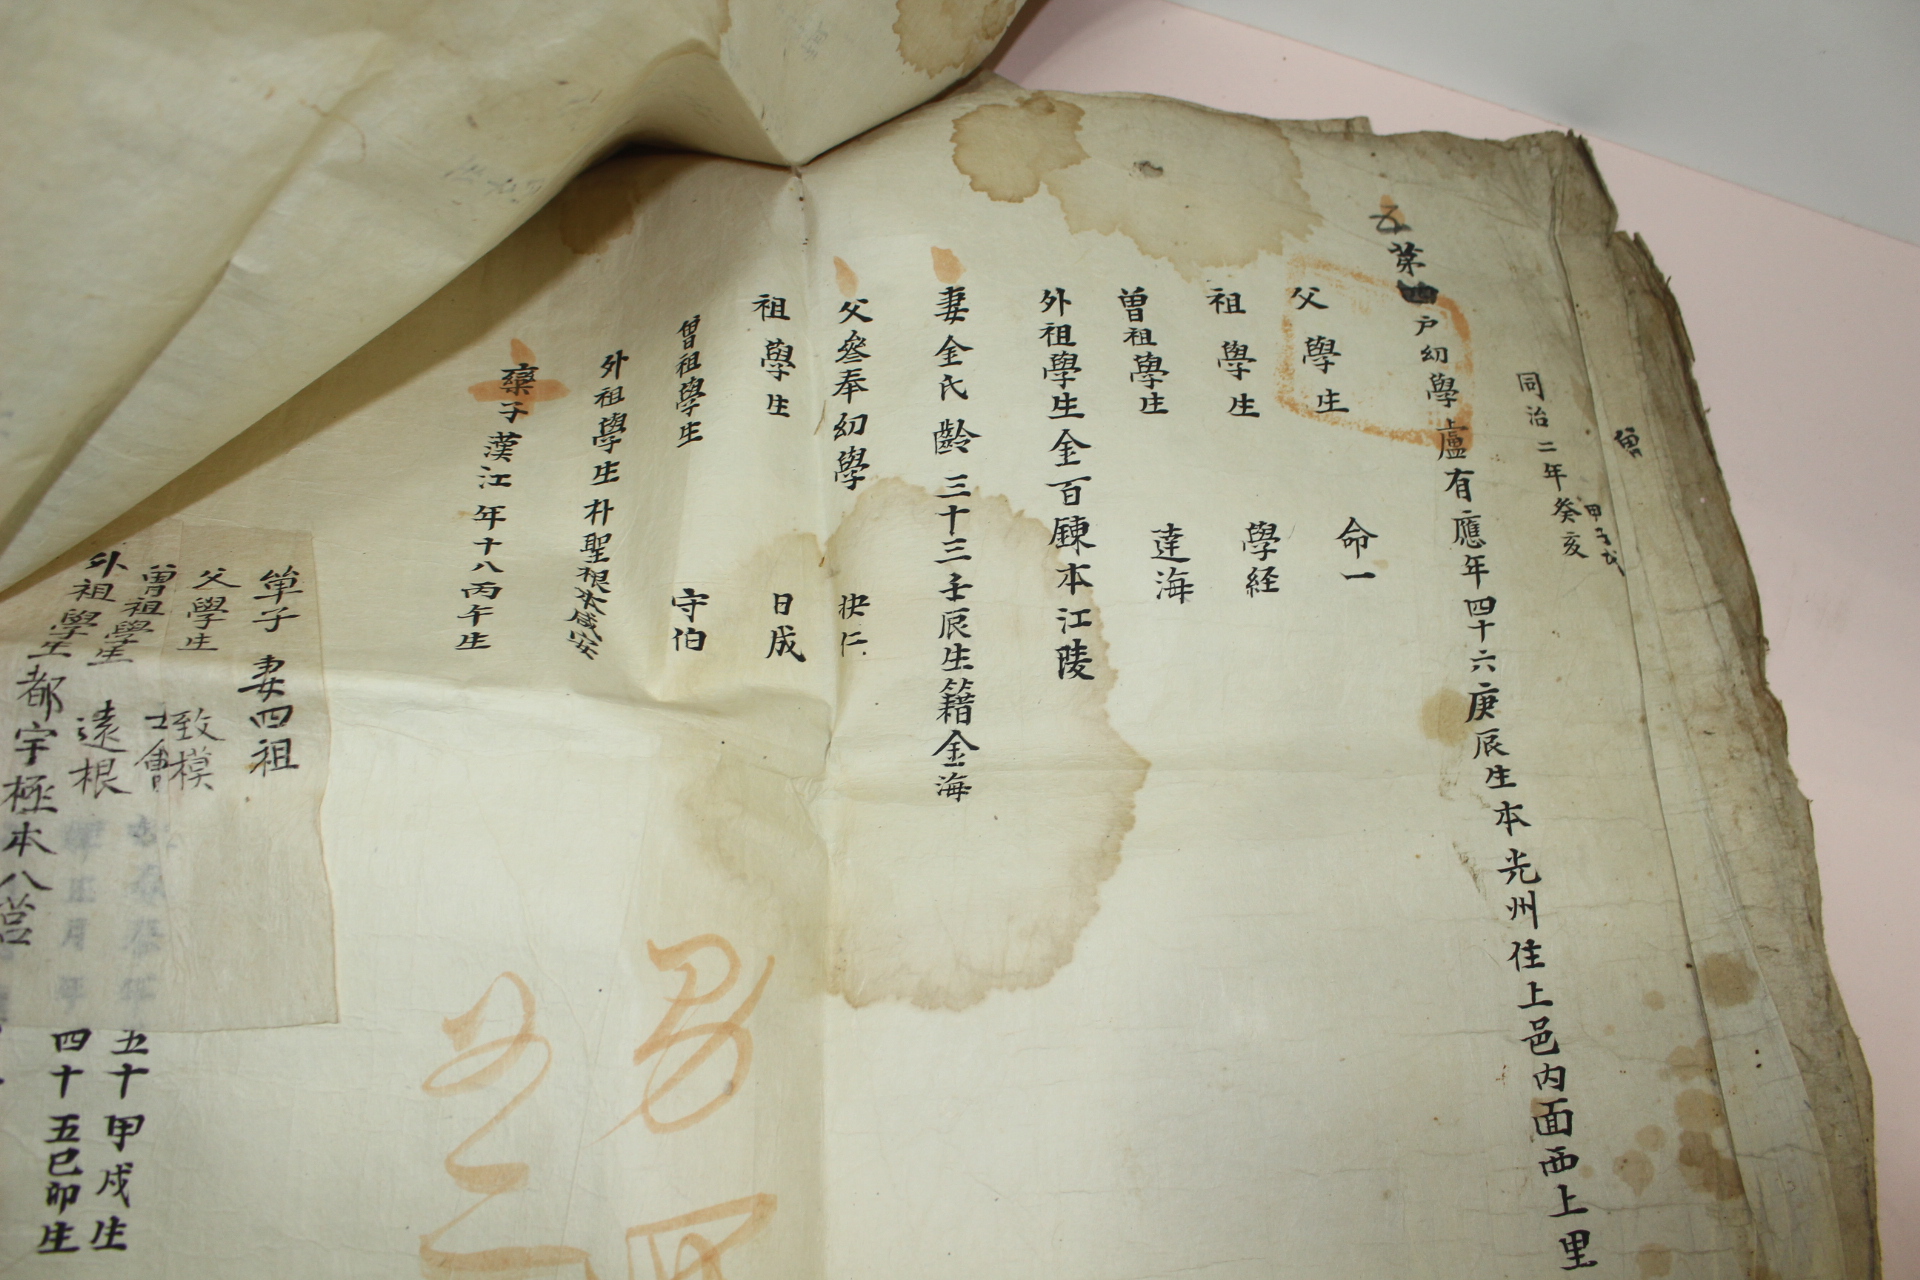 同治二年癸亥
甲子式
五
第四戶幼學盧有應年四十六庚辰生本光州住上邑內面西上里
父學生 命一
祖學生 學経
曾祖學生 達海
外祖學生金百鍊本江陵
妻金氏齡三十三壬辰生籍金海
父參奉幼學 仁
祖學生 日成
曾祖學生 守伯
外祖學生朴聖根本咸安
子漢江年十八丙午生
單子 妻四祖
父學生 致模
曾祖學生 士會
外祖學生 遠根
都宇極本八莒
五十甲戌生
四十五巳卯生
男 四
女二